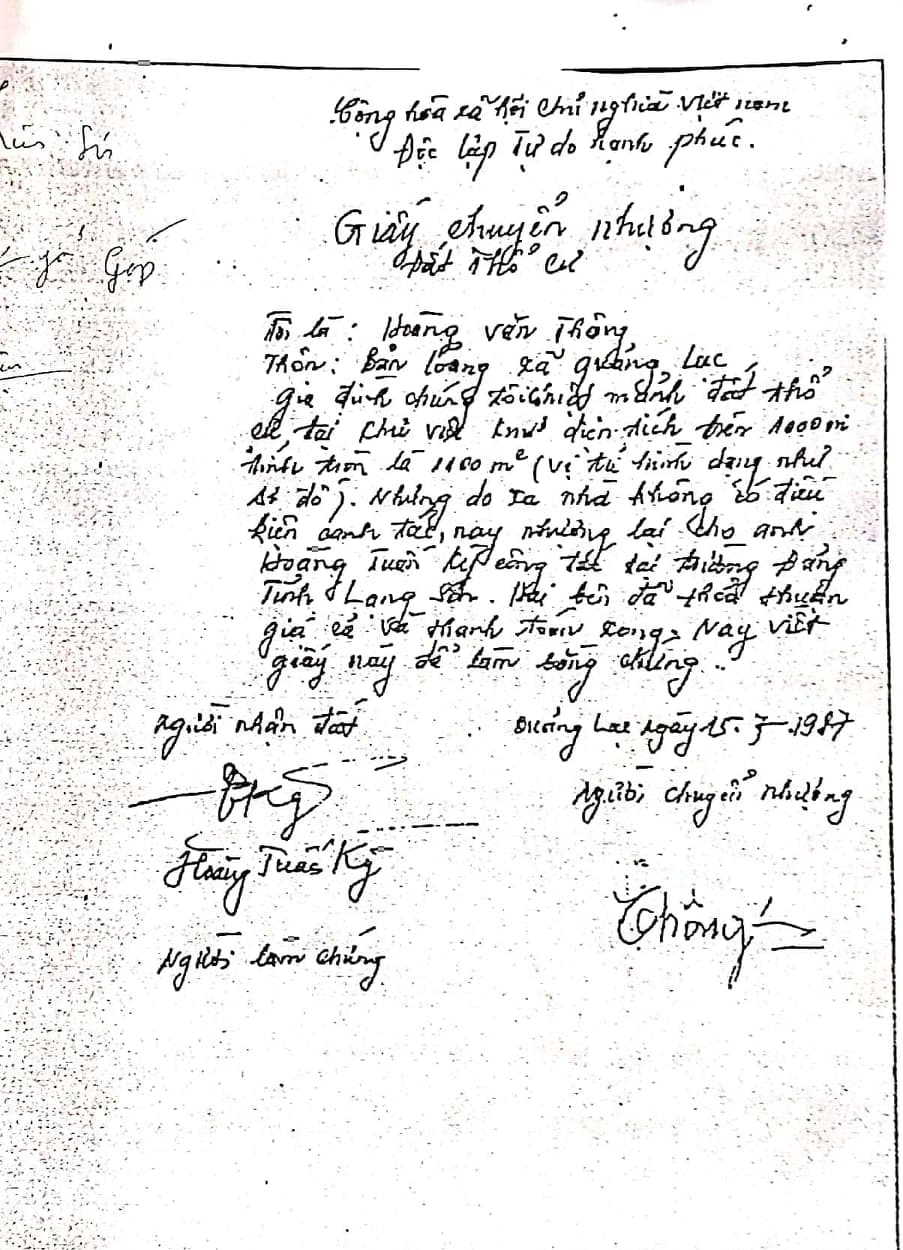 Cộng hòa xã hội chủ nghĩa việt nam
Độc lập Tự do hạnh phúc.
Giấy chuyển nhượng
Đất Thổ cư
Góp
Tôi là: Hoàng văn Thông
Thôn: Bản loỏng xã quảng Lạc
gia đình chúng tôi có mảnh đất thổ
cư, tại khu diện tích trên 1000 m
tính tròn là 1100 m² (vị trí hình dạng như
sơ đồ). Nhưng do xa nhà không có điều
kiện canh tác, nay nhường lại cho anh
Hoàng Tuấn Kỳ công tác tại trường Đảng
Tỉnh Lạng Sơn. Hai bên đã thỏa thuận
giá cả và thanh toán xong, Nay viết
giấy này để làm bằng chứng..
Người nhận đất
Quảng Lạc ngày 15. .1987
Người chuyển nhượng
Hoàng Tuấn Kỳ
Thông
Người làm chứng